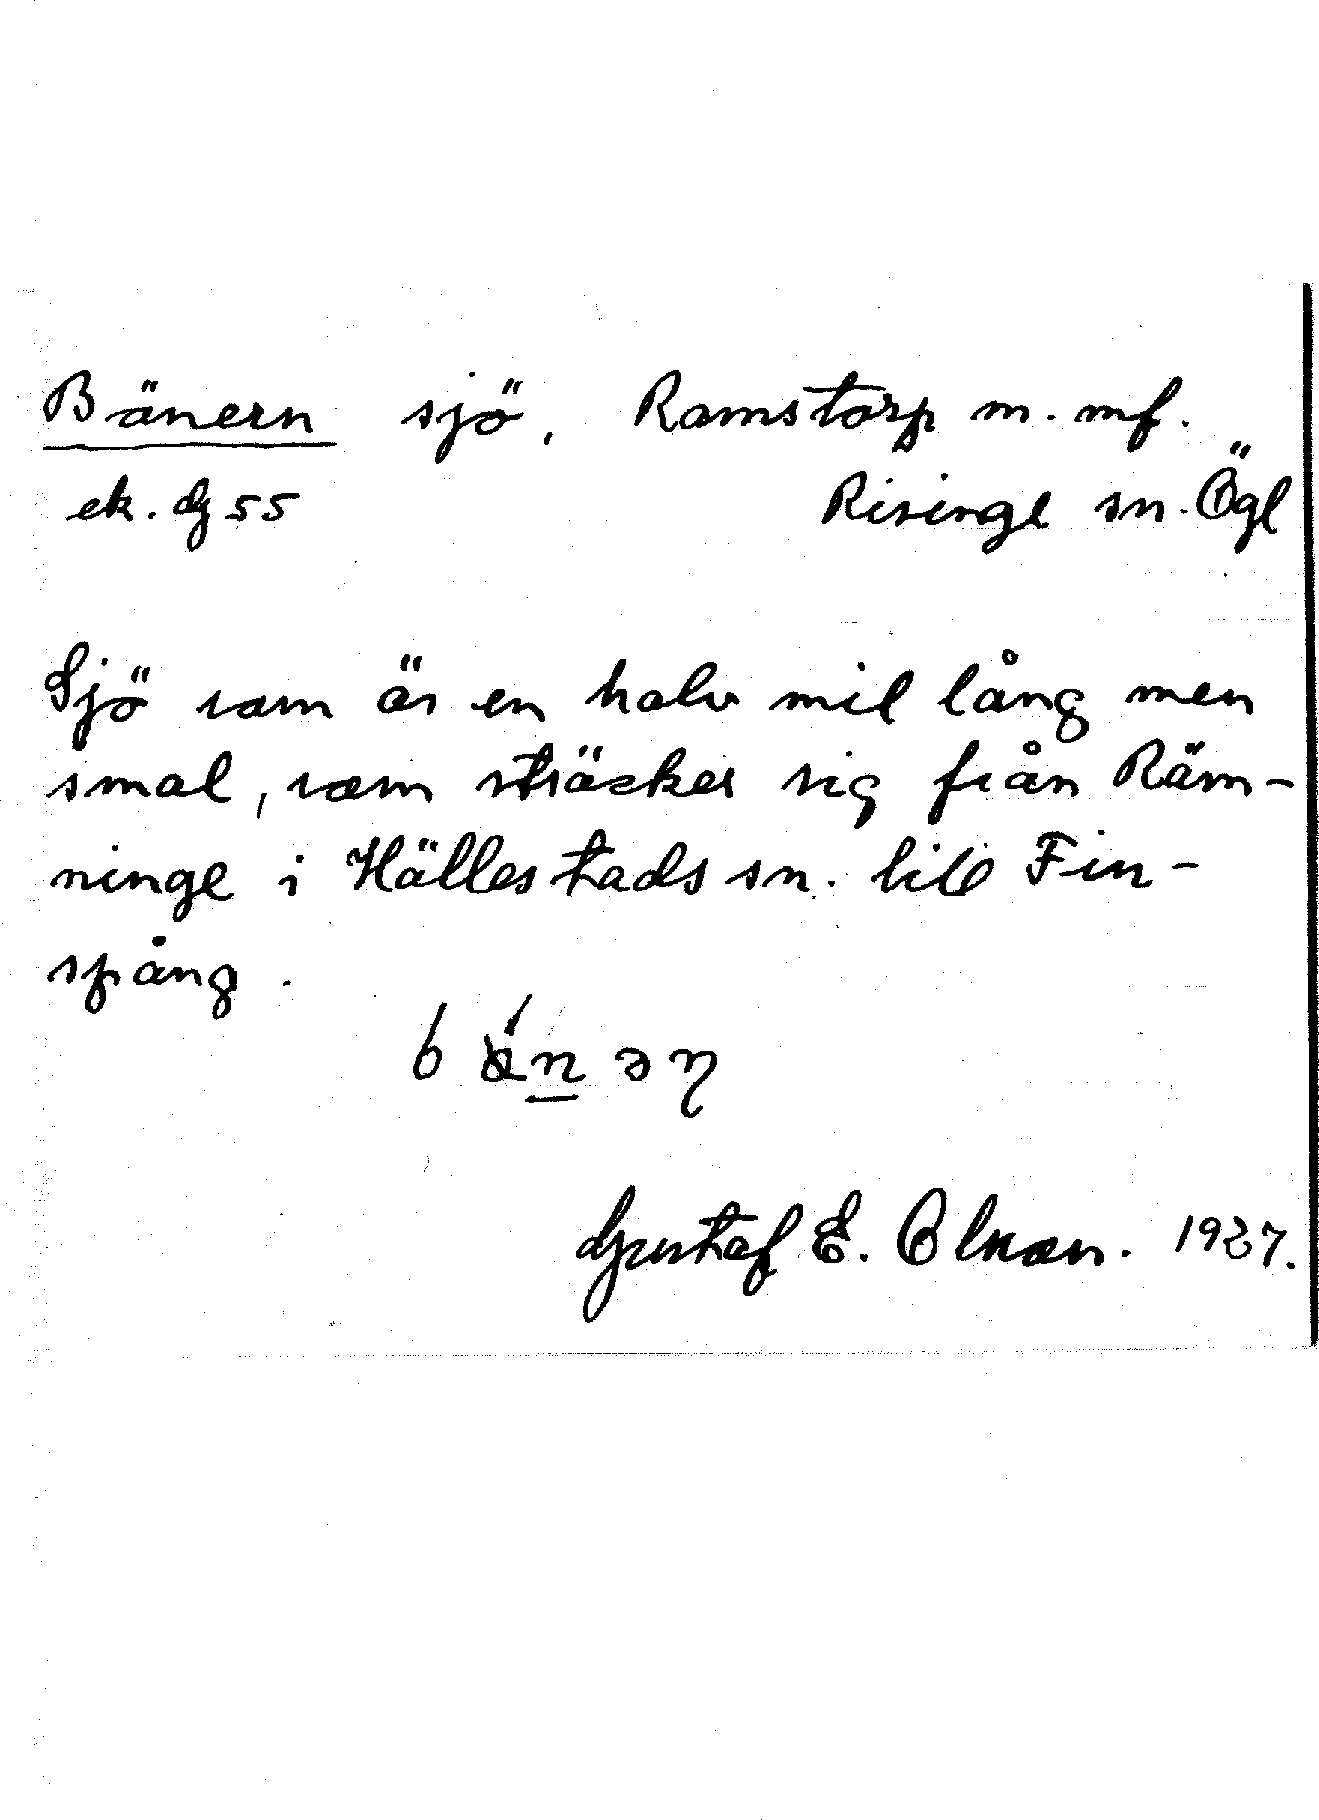 Bänern sjö, Ramstorp m. mf.
ek. dg 55 Risinge sn. Ögl
Sjö som är en halv mil lång men
smal, som sträcker sig från Räm-
ninge i Hällestads sn. till Fin-
spång.
Gustaf E. Olsson. 1937.